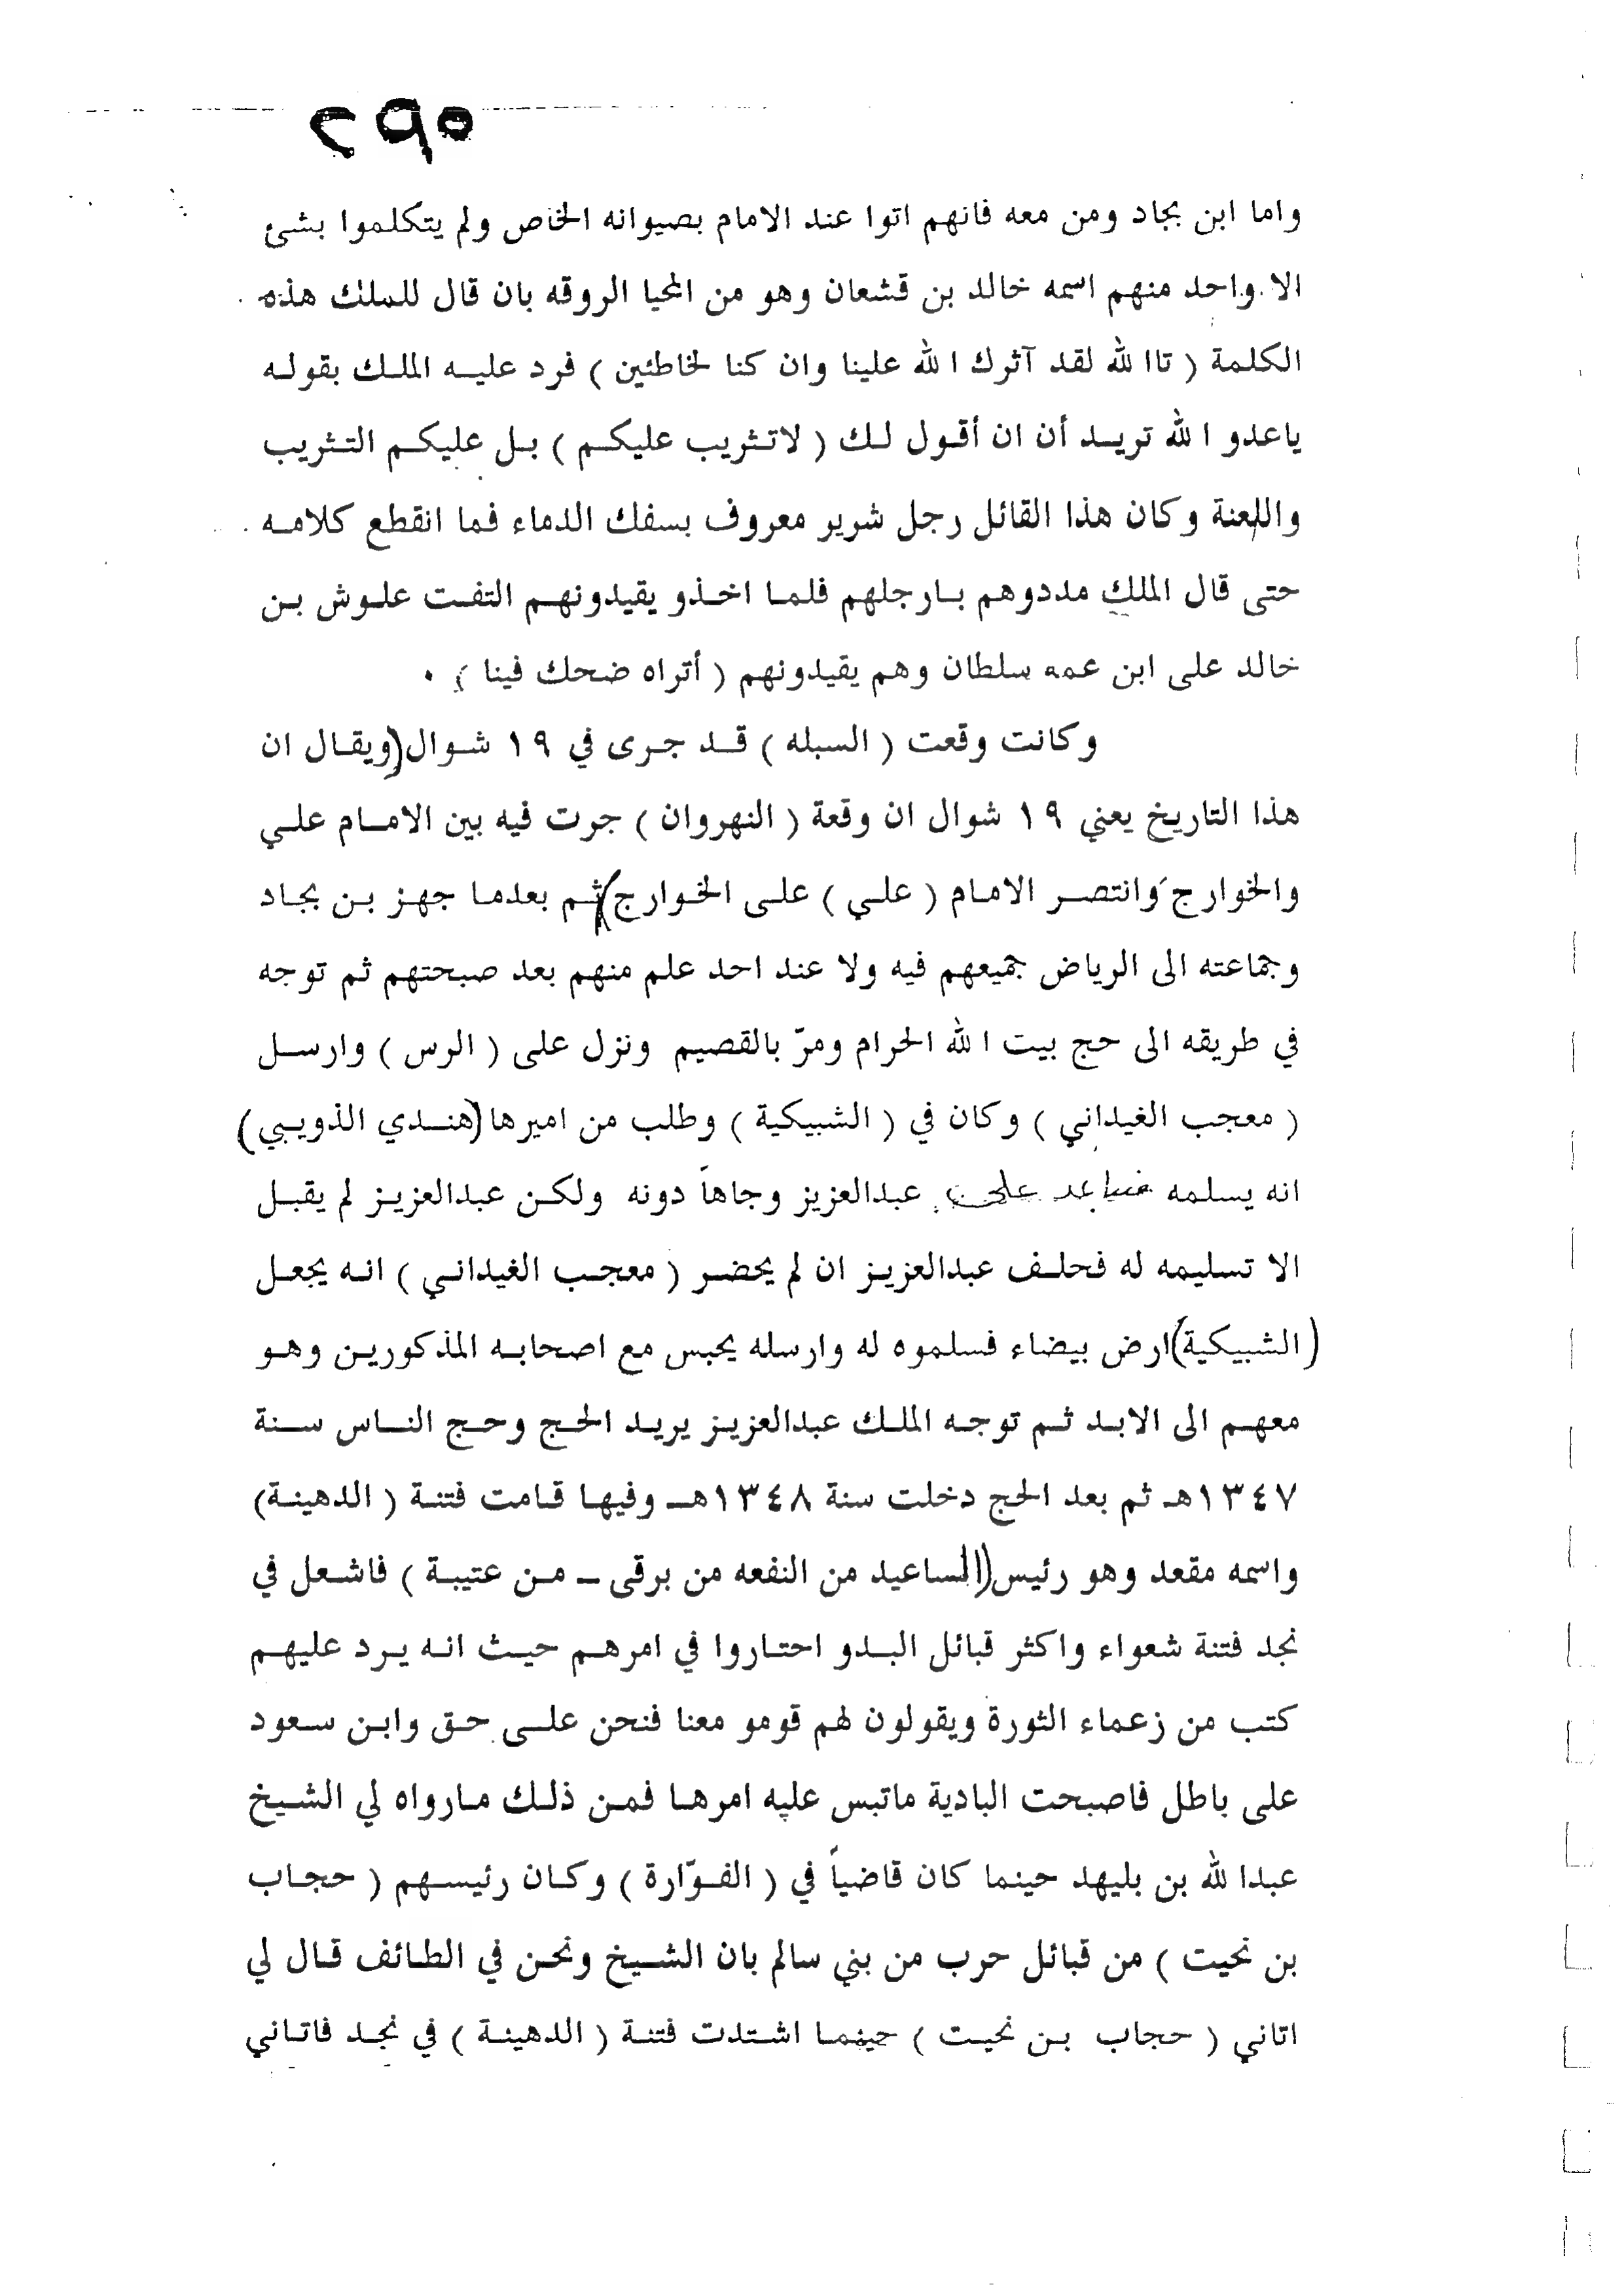 ٢٩٥
واما ابن بجاد ومن معه فانهم اتوا عند الامام بصيوانه الخاص ولم يتكلموا بشئ
الا واحد منهم اسمه خالد بن قشعان وهو من المحيا الروقه بان قال للملك هذه
الكلمة ( تاالله لقد آثرك الله علينا وان كنا لخاطئين ) فرد عليه الملك بقوله
ياعدو الله تريد أن ان أقول لك ( لاتثريب عليكم ) بل عليكم التثريب
واللعنة وكان هذا القائل رجل شرير معروف بسفك الدماء فما انقطع كلامه
حتى قال الملك مددوهم بارجلهم فلما اخذو يقيدونهم التفت علوش بن
خالد على ابن عمه سلطان وهم يقيدونهم ( أتراه ضحك فينا ) .
وكانت وقعت ( السبله ) قد جرى في ١٩ شوال (ويقال ان
هذا التاريخ يعني ١٩ شوال ان وقعة ( النهروان ) جرت فيه بين الامام علي
والخوارج وانتصر الامام ( علي ) على الخوارج) ثم بعدما جهز بن بجاد
وجماعته الى الرياض جميعهم فيه ولا عند احد علم منهم بعد صبحتهم ثم توجه
في طريقه الى حج بيت الله الحرام ومرّ بالقصيم ونزل على ( الرس ) وارسل
( معجب الغيداني ) وكان في ( الشبيكية ) وطلب من اميرها (هندي الذويبي)
انه يسلمه عبدالعزيز وجاهاً دونه ولكن عبدالعزيز لم يقبل
الا تسليمه له فحلف عبدالعزيز ان لم يحضر ( معجب الغيداني ) انه يجعل
(الشبيكية) ارض بيضاء فسلموه له وارسله يحبس مع اصحابه المذكورين وهو
معهم الى الابد ثم توجه الملك عبدالعزيز يريد الحج وحج الناس سنة
١٣٤٧هـ ثم بعد الحج دخلت سنة ١٣٤٨هـ وفيها قامت فتنة ( الدهينة)
واسمه مقعد وهو رئيس (المساعيد من النفعه من برقى - من عتيبة ) فاشعل في
نجد فتنة شعواء واكثر قبائل البدو احتاروا في امرهم حيث انه يرد عليهم
كتب من زعماء الثورة ويقولون لهم قومو معنا فنحن على حق وابن سعود
على باطل فاصبحت البادية ماتبس عليه امرها فمن ذلك مارواه لي الشيخ
عبدالله بن بليهد حينما كان قاضياً في ( الفوّارة ) وكان رئيسهم ( حجاب
بن نحيت ) من قبائل حرب من بني سالم بان الشيخ ونحن في الطائف قال لي
اتاني ( حجاب بن نحيت ) حينما اشتدت فتنة ( الدهينة ) في نجد فاتاني